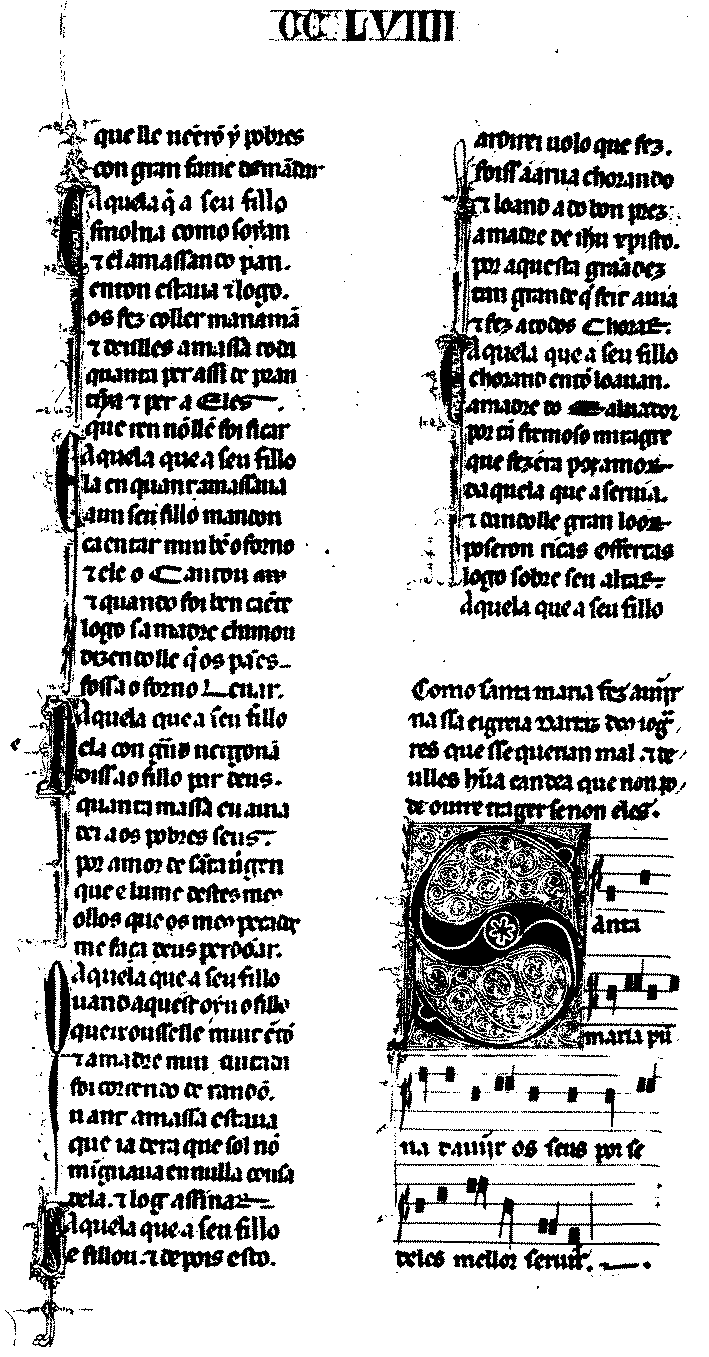 CCLVIIII
que lle uẽerõ ỹ pobres
con gran fame demãdar
Aquela q̃ a seu fillo
esmolna como soyan
⁊ el amassando pan.
enton estaua ⁊ logo.
os fez coller mananmã
⁊ deulles amassa toda
quanta per assi de pran
⁊ per a Eles
que ren nõ lle foi ficar
Aquela que a seu fillo
Ela en quant amassaua
a un seu fillo mandou
caentar mui bẽ o forno
⁊ ele o Caentou
⁊ quando foi ben caẽte
logo sa madre chamou
dizendolle q̃ os pães
fossa o forno Leuar.
Aquela que a seu fillo
ela con
dissao fillo par deus.
quanta massa eu auia
dei aos pobres seus
por amor de sãta uirgen
que e lume destes meꝯ
ollos que os meꝯ pecados
me faça deus perdõar.
Aquela que a seu fillo
Quand aquest oyu o fillo
queixousselle muit ẽtõ
⁊ a madre mui
foi correndo de randõ.
u ant a massa estaua
que ia dera que sol nõ
mĩguaua en nulla cousa
dela. ⁊ log assinar
Aquela que a seu fillo
e fillou. ⁊ depois esto.
a o que fez.
foiss chorando
⁊ loando a do bon prez
a madre de ihũ xpisto.
por aquesta grãadez
tan grande q̃ feit auia
⁊ fez a todos Chorar.
Aquela que a seu fillo
chorando entõ loauan.
a madre do saluador
por tã fremoso miragre
que fezera por amor
daquela que a seruia.
⁊ dandolle gran loor
poseron ricas offertas
logo sobre seu altar
Aquela que a seu fillo
Como santa maria fez auĩir
na ssa eigreia dous iog̃
res que sse querian mal ⁊ de
ulles hũa candea que non po
de outre trager senon eles.
Santa
maria pũ
na dauĩjr os seus por se
deles mellor seruir.